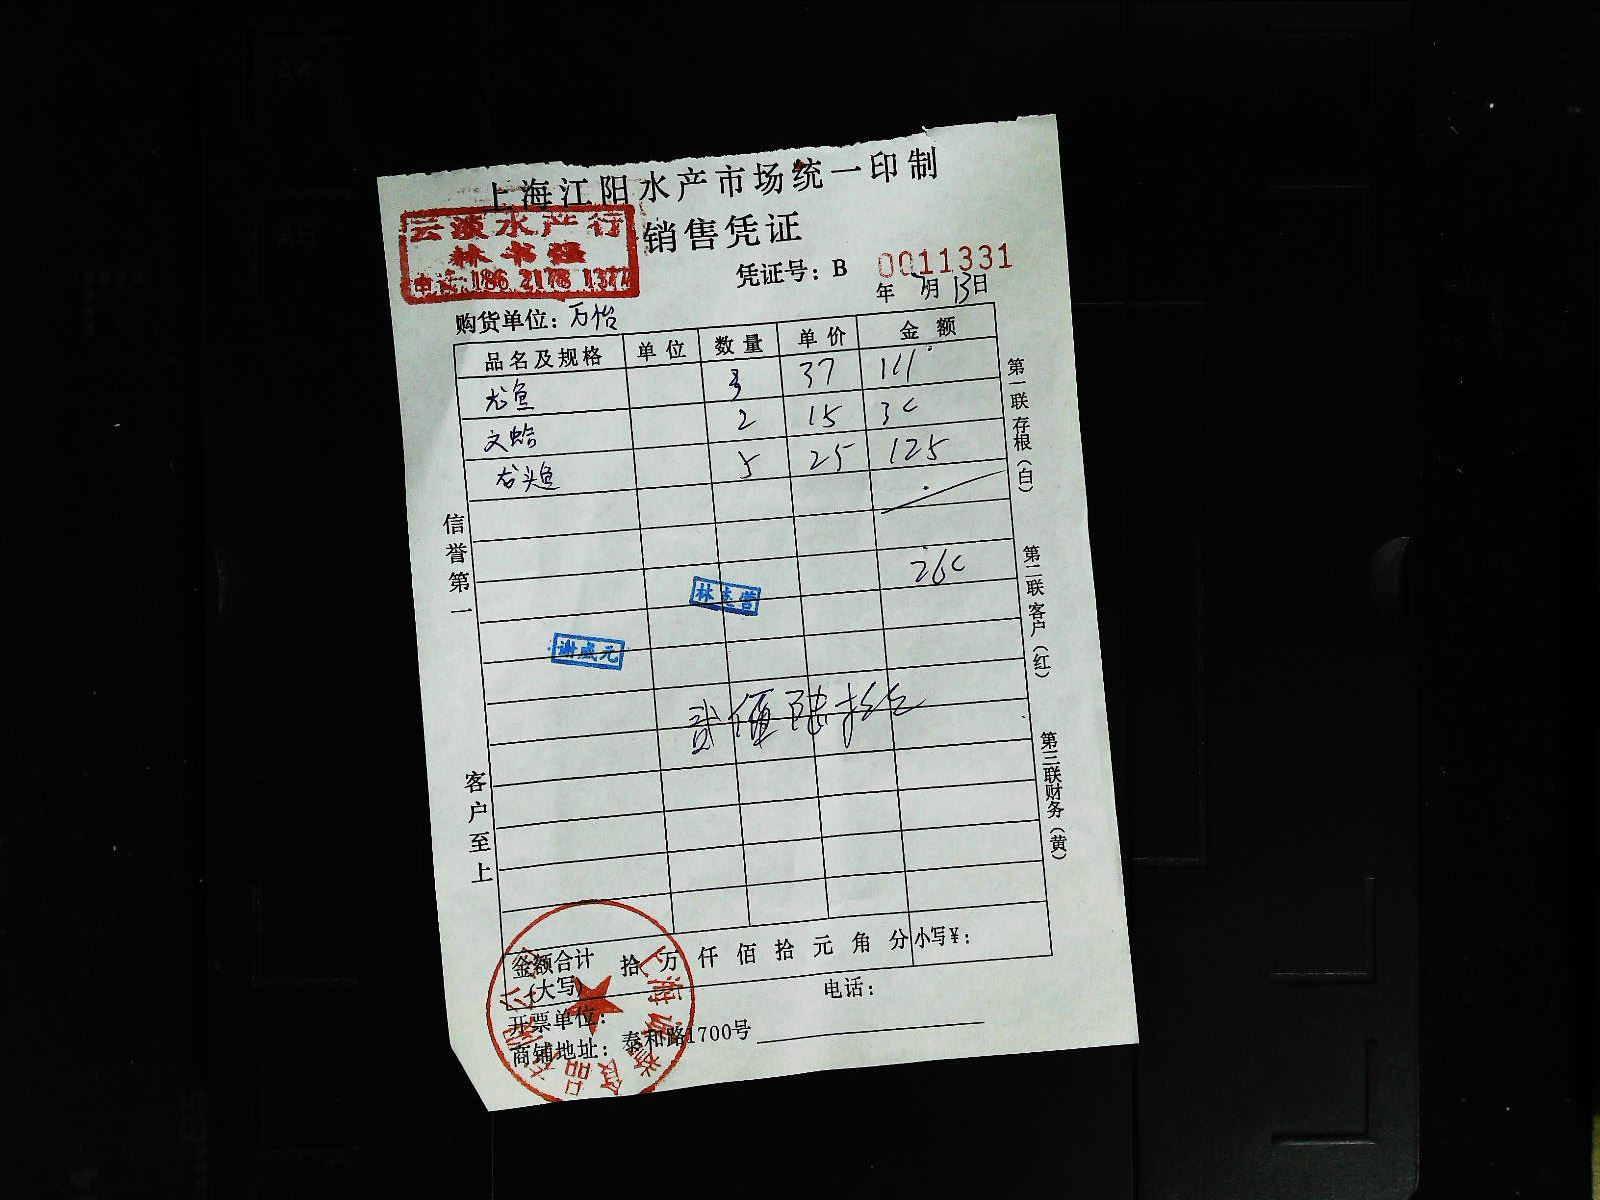 上海江阳水产市场统一印制
销售凭证
云淡水产行
林书强
电话:186 2178 1377
凭证号：B 0011331
年 7月 13日
购货单位：万怡
品名及规格 单位 数量 单价 金额
龙鱼 3 37 111
文蛤 2 15 30
龙头鱼 5 25 125
260
林志营
谢成元
贰佰陆拾元
金额合计(大写) 拾 万 仟 佰 拾 元 角 分 小写¥：
开票单位： 电话：
商铺地址：泰和路1700号
信誉第一
客户至上
第一联存根（白）
第二联客户（红）
第三联财务（黄）